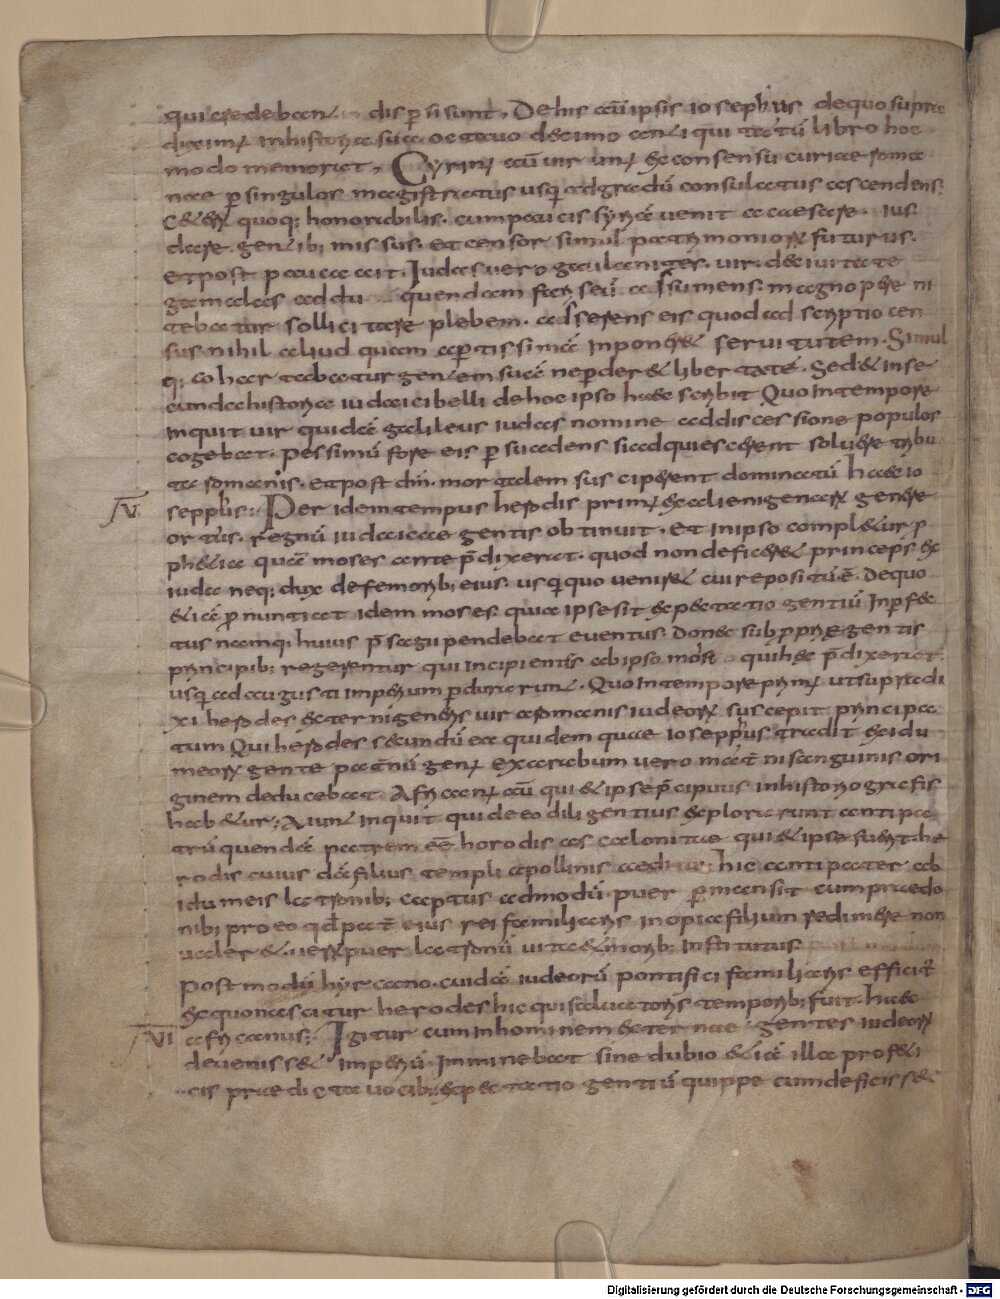 qui credebant dispersi sunt, De his aū ipsis iosephus de quo supra
diximꝰ in historia sua octauo decimo antiquitatū libro hoc
modo memorat, Cyrinꝰ aū uir unꝰ ex consensu curiae roma
nae ꝑ singulos magistratus usq; ad gradū consulatus ascendens.
Ceterꝝ quoq; honorabilis. cum paucis syriā uenit a caesare. ius
dare. gentib; missus. et censor simul patrimoniorꝝ futurus.
Et post pauca ait. Iudas uero gaulanites. uir. de ciuitate
gamalas addu quendam fariseū adsumens. magnopere ni
tebatur sollicitare plebem. adserens eis quod adscriptio cen
sus nihil aliud quam aꝑtissimā inponeret seruitutem. Simul
q; cohortabatur gentem suā ne ꝑderet libertatē. Sed et in se
cunda historia iudaici belli de hoc ipso haec scribit Quo in tempore
inquit uir quidā galileus iudas nomine ad discessione populos
cogebat. pessimū fore eis ꝑsuadens si adquiescerent soluere tribu
ta romanis. et post dm̄. mortalem susciperent dominatū haec io
seppus:
IV. Per idem tempus herodis primꝰ ex alienigenarꝝ genere
ortus. regnū iudaicae gentis obtinuit. Et in ipso completur ꝓ
phetia quā moses ante p̄dixerat. quod non deficeret princeps ex
iuda neq; dux de femorib; eius. usq; quo ueniret cui repositū ē. De quo
etiā pronuntiat idem moses. quia ipse sit expectatio gentiū Inperfec
tus namq; huius p̄sagii pendebat euentus. donec sub propriꝝ gentis
principib; regerentur qui incipientes ab ipso mose qui haec p̄dixerat
usq; ad augusti imperium perdurarunt. Quo in tempore primꝰ ut supra di
xi herodes externi generis uir a romanis iudeorꝝ suscepit principa
tum Qui herodes secundū ea quidem quae ioseppus tradit ex idu
meorꝝ gente paternū genꝰ ex arabum uero materni sanguinis ori
ginem deducebat. Africanꝰ aū qui et ipse p̄cipuus in historiografis
habetur; Aiunt inquit qui de eo diligentius explorarunt antipa
trū quendā patrem eē horodis ascalonitae qui et ipse fuerit he
rodis cuius dā filius templi apollinis aeditui hic antipater ab
idumeis latronib; captus admodū. puer ꝑmansit cum praedo
nib; pro eo qd̄ pat̄ eius rei familiaris inopia filium redimere non
ualeret. uerꝝ puer latronū uita et morib; institutus
post modū hyrcano. cuidā iudeorū pontifici familiaris efficit᷒
ex quo nascitur herodes hic qui saluatoris temporib; fuit. haec
africanus:.
VI Igitur cum in hominem externae gentes iudeorꝝ
deuenisset imperiū. Imminebat sine dubio etiā illa profeti
cis praedicta uocib; expectatio gentiū quippe cum defecisset
Digitalisierung gefördert durch die Deutsche Forschungsgemeinschaft - DFG